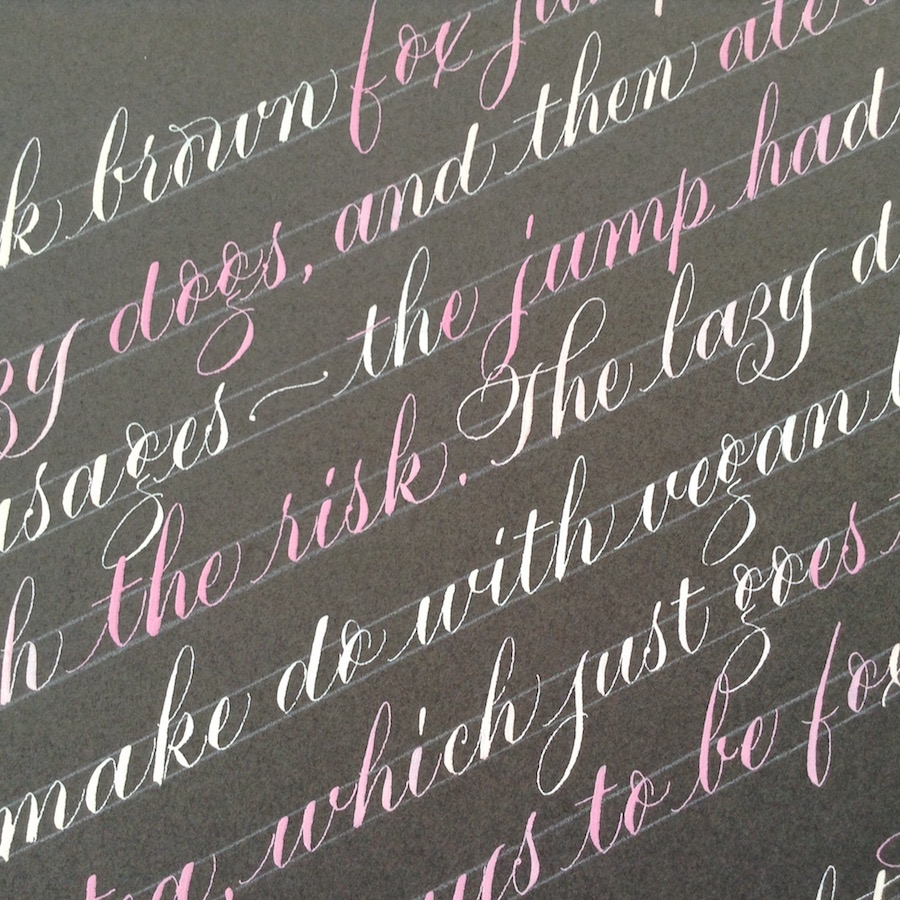 brown fox
dogs, and then ate
the jump had
the risk. The lazy
make do with vegan
which just goes
to be